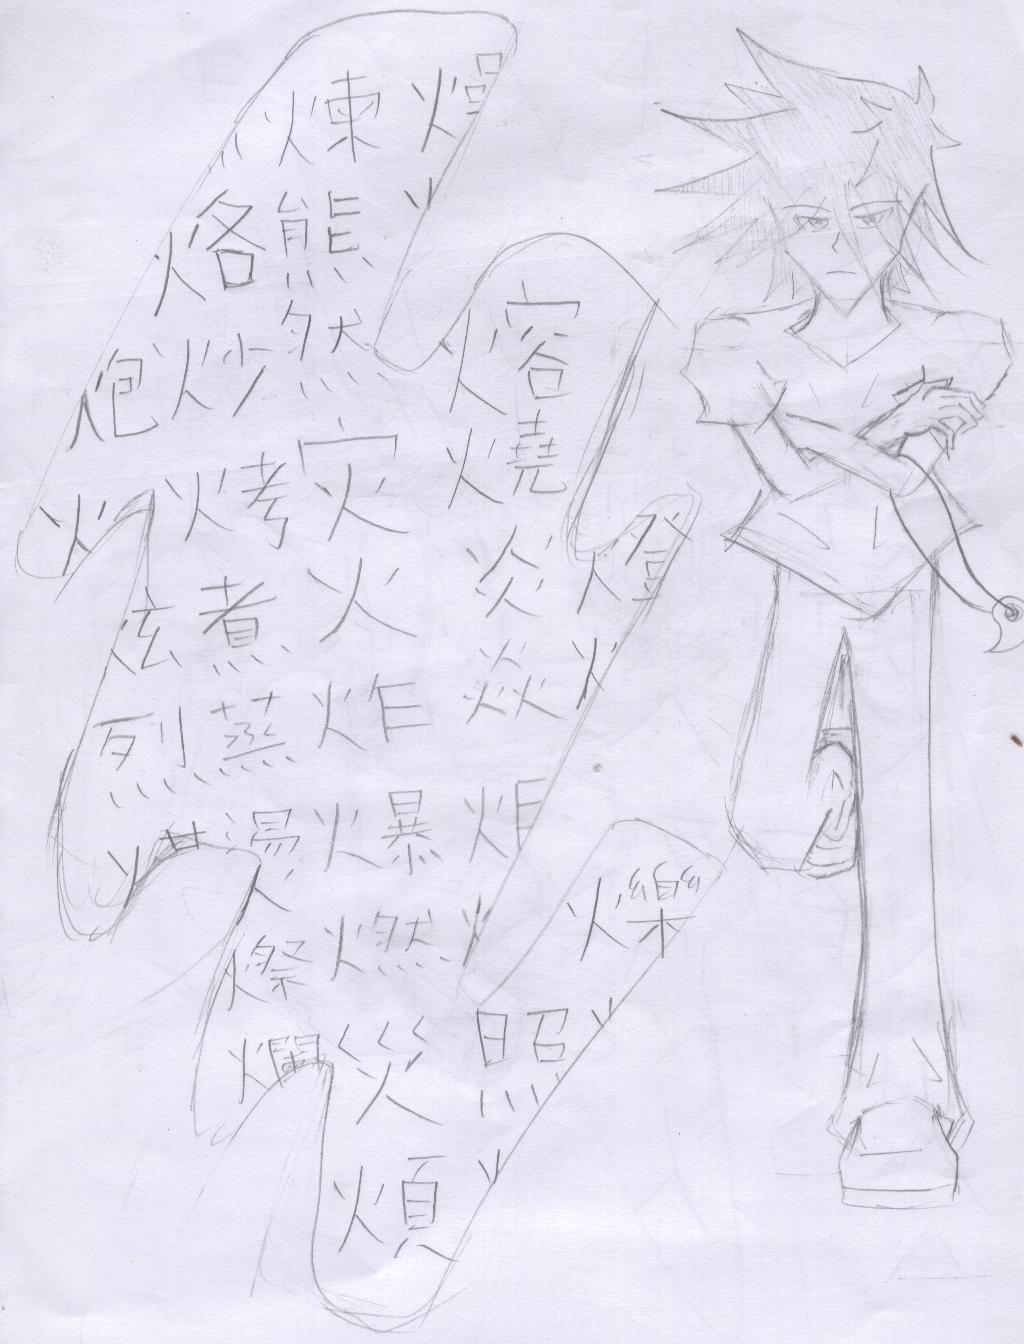 煉 燥
烙 熊
炮 炒 然 熔
火 烤 灾 燒
炫 煮 火 炎 燈
烈 蒸 炸 焱 火
燙 爆 炬
燃 爍
燦
爛 災 照
煩